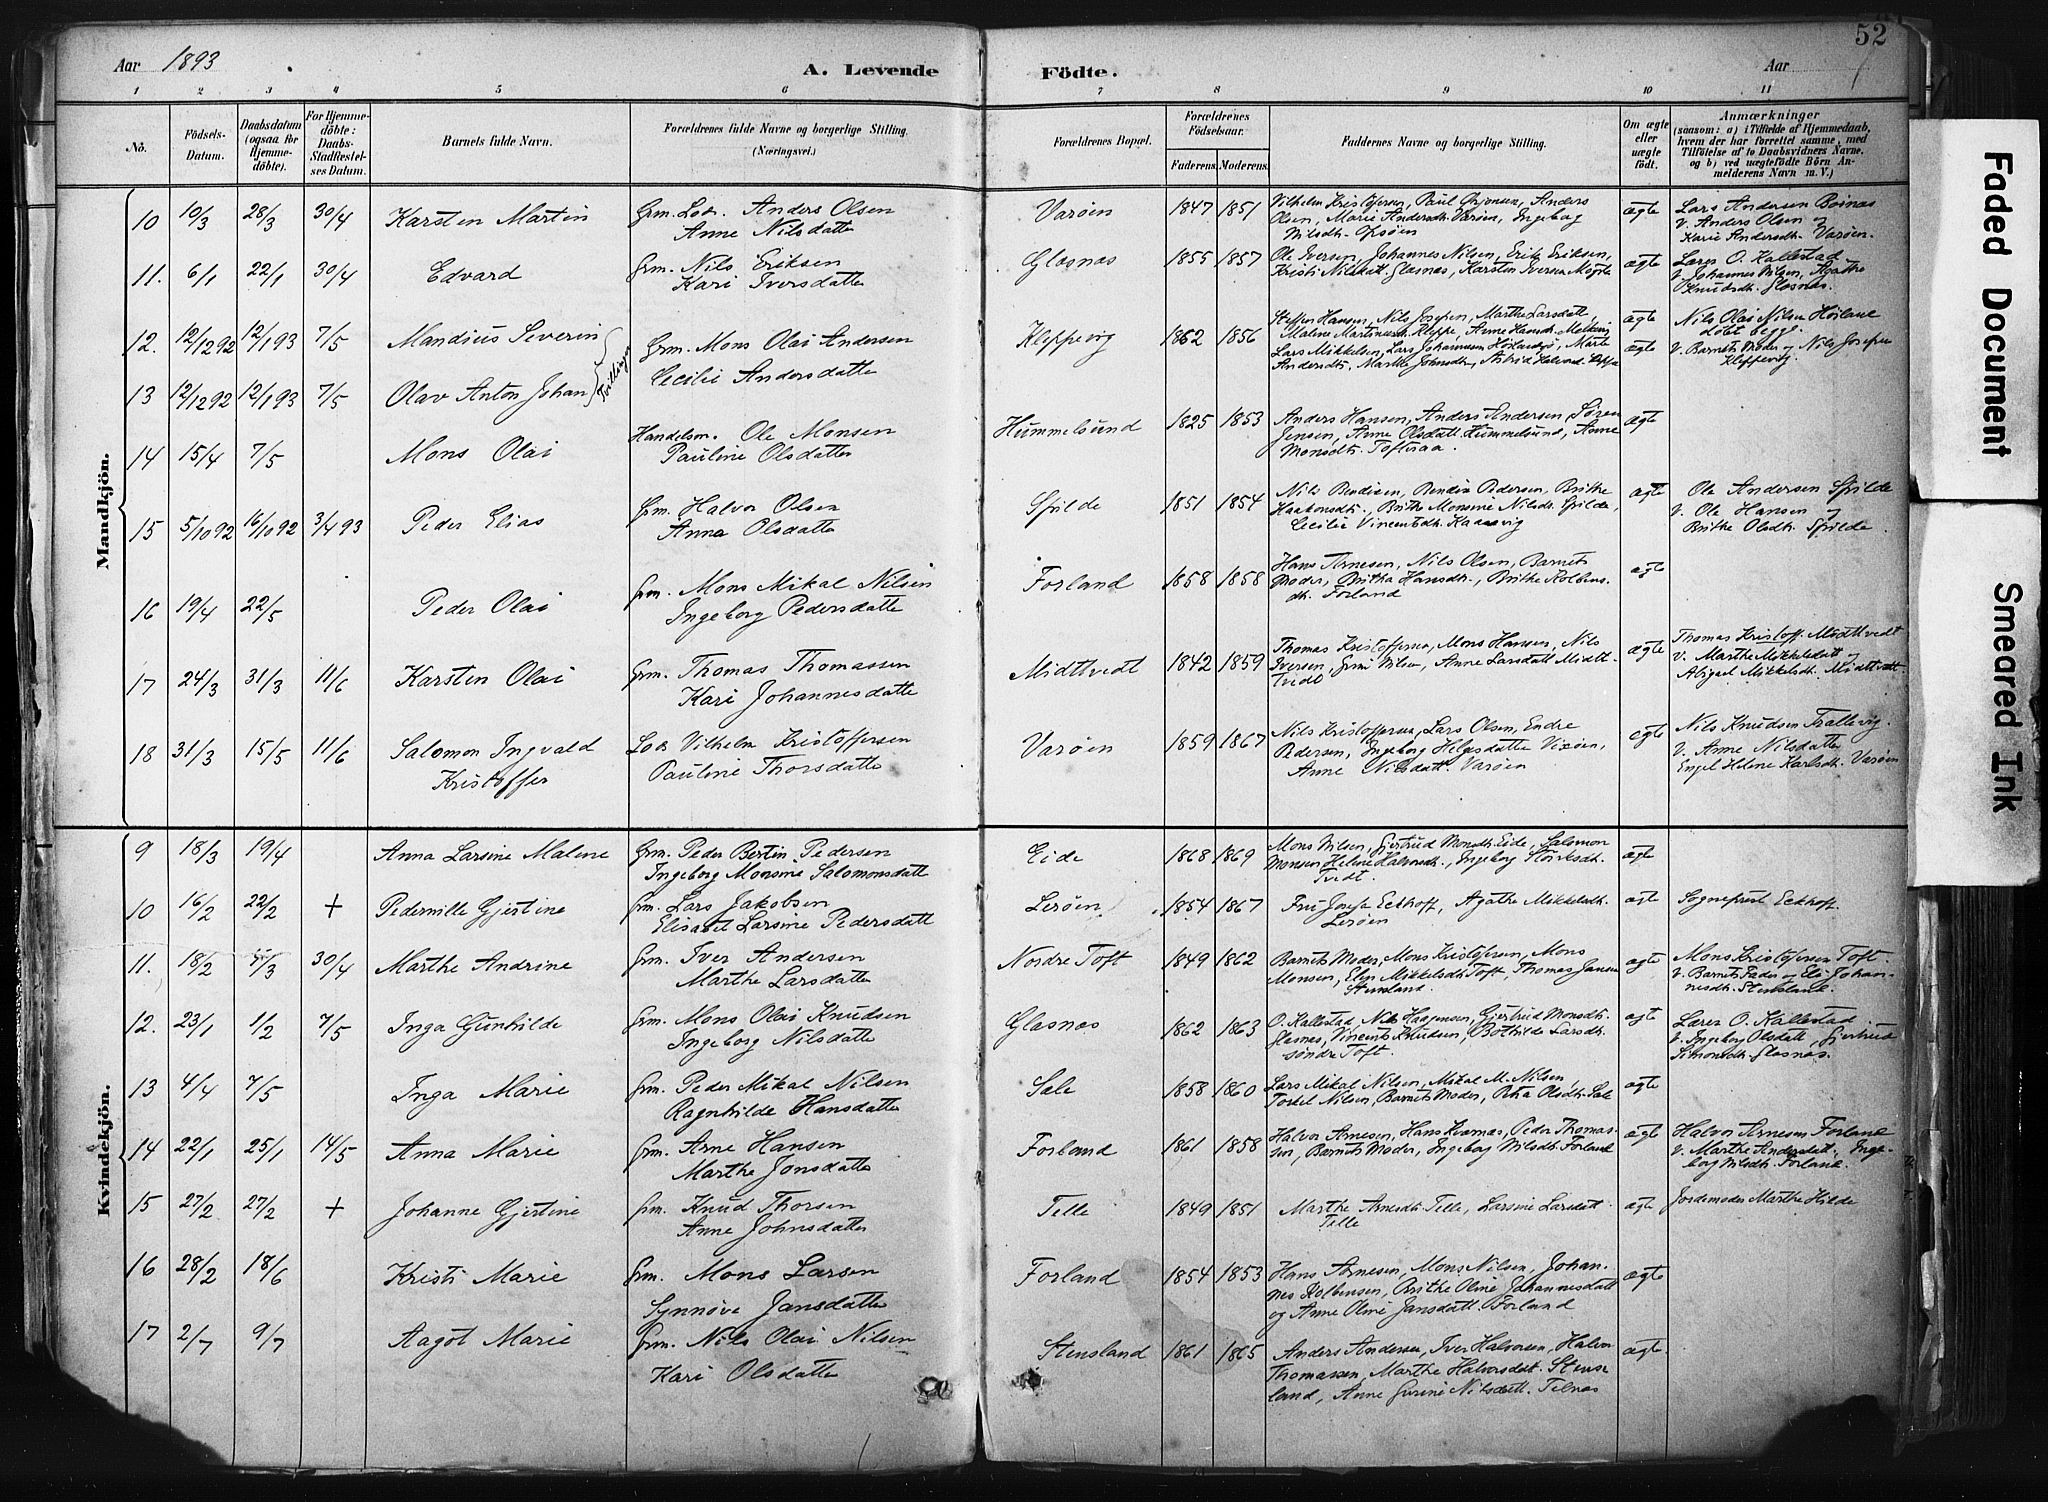 52
Aar 1893
A. Levende
Födte.
Aar
1 2 3 4 5 6 7 8 9 10 11
No.
Födsels-Datum.
Daabsdatum (ogsaa for Hjemmedöbte).
For Hjemmedöbte: Daabs-Stadfæstelses Datum.
Barnets fulde Navn.
Forældrenes fulde Navne og borgerlige Stilling.
(Næringsvei.)
Forældrenes Bopæl.
Forældrenes Födselsaar.
Faderens. Moderens.
Faddernes Navne og borgerlige Stilling.
Om ægte eller uægte födt.
Anmærkninger
(saasom: a) i Tilfælde af Hjemmedaab,
hvem der har forrettet samme, med
Tilföielse af to Daabsvidners Navne.
og b) ved uægtefödte Börn Anmelderens Navn m. V.)
Mandkjön.
10 10/3 28/3 30/4 Karsten Martin Grm. Anders Olsen Varöen 1847 1851 Vilhelm Kristofersen, Anders ægte Lars Andersen
Anne Nilsdatter Olsen, Marie Andersdt. Varöen, Ingeborg V. Anders Olsen og
Nilsdt. Karie Andersdt. Varöen.
11. 6/1 22/1 30/4 Edvard Grm. Nils Eriksen Glasnæs 1855 1857 Ole Iversen, Johannes Nilsen, Erik Eriksen, ægte Lærer O. Kallestad
Kari Iversdatter Kristi Nilsdatt. Glasnæs, Karsten Iversen V. Johannes Nilsen, Agathe
Knudsdt. Glasnæs.
12. 12/12 92 12/1 93 7/5 Mandius Severin Tvillinger Grm. Mons Olai Andersen Kleppevig 1862 1856 Steffen Hansen, Nils Josefsen, Marthe Larsdatt, ægte Nils Olai Nilsen
Cecilie Andersdatter Kleppe, Anne Hansdt. döbt begge.
13 12/12 92 12/1 93 7/5 Olav Anton Johan Lars Mikkelsen, Lars Johannesen ægte V. Barnets Moder og Nils Josefsen
Andersdt., Marthe Johnsdt., Astrid Kleppevig.
14 15/4 7/5 Mons Olai Handelsm. Ole Monsen Hummelsund 1825 1853 Anders Hansen, Anders Andersen, Sören ægte
Pauline Olsdatter Jensen, Anne Olsdatt. Hummelsund, Anne
Monsdt. Tofteraa.
15 5/10 92 16/10 92 3/4 93 Peder Elias Grm. Halvor Olsen Spilde 1851 1854 Nils Bendixen, Pedersen, Brithe ægte Ole Andersen Spilde
Anna Olsdatter Haakonsdt., Brithe Monsine Nilsdt. Spilde, V. Ole Hansen og
Cecilie Vincentsdt. Brithe Olsdt. Spilde.
16 19/4 22/5 Peder Olai Grm. Mons Mikal Nilsen Forland 1858 1858 Hans Arnesen, Nils Olsen, Barnets ægte
Ingeborg Pedersdatter Moder, Britha Hansdt., Brithe Kolbens-
dt. Forland
17 24/3 31/3 11/6 Karsten Olai Grm. Thomas Thomassen Midttvedt 1842 1859 Thomas Kristoffersen, Mons Hansen, Nils ægte Thomas Kristoff. Midttvedt
Kari Johannesdatter Iversen, Nilsen, Anne Larsdatt Midt- V. Marthe Mikkelsdatt og
tvedt Abigael Mikkelsdt. Midttvedt.
18 31/3 15/5 11/6 Salomon Ingvald Kristoffer Vilhelm Kristoffersen Varöen 1859 1867 Nils Kristoffersen, Lars Olsen, Endre ægte Nils Knudsen Trællevig.
Pauline Thorsdatter Pedersen, Ingeborg Helgesdatter Vixöen, V. Anne Nilsdatter
Anne Nilsdatt. Varöen Engel Helene Karlsdt. Varöen
Kvindekjön.
9 18/3 19/4 Anna Larsine Malene Grm. Peder Bertin Pedersen Eide 1868 1869 Mons Nilsen, Gjertrud Monsdt. Eide, Salomon ægte
Ingeborg Monsine Salomonsdatt Monsen, Helene Halvorsdt., Ingeborg
Tvedt.
10 16/2 22/2 + Pedernille Gjertine Grm. Lars Jakobsen Leröen 1854 1867 Fru Josefa Eckhoff, Agathe Mikkelsdt. ægte Sognepræst Eckhoff.
Elisabet Larsine Pedersdatt Leröen
11. 18/2 5/3 30/4 Marthe Andrine Grm. Iver Andersen Nordre Toft 1849 1862 Barnets Moder, Mons Kristofersen, Mons ægte Mons Kristofersen Toft
Marthe Larsdatter Monsen, Mikkelsdt. Toft, Thomas Jansen V. Barnets Fader og Eli Johan-
Stensland. nesdt. Stensland.
12. 23/1 1/2 7/5 Inga Gunhilde Grm. Mons Olai Knudsen Glasnæs 1862 1863 O. Kallestad, Nils Haagensen, Gjertrud Monsdt. ægte Lærer O. Kallestad
Ingeborg Nilsdatter Glasnæs, Vincents Knudsen, Bothilde Larsdt. V. Ingeborg Olsdatt, Gjertrud
söndre Toft. Simonsdt. Glasnæs.
13 4/4 7/5 Inga Marie Grm. Peder Mikal Nilsen Sale 1858 1860 Lars Mikal Nilsen, Mikal M. Nilsen, ægte
Ragnhilde Hansdatter Torkel Nilsen, Barnets Moder, Petra Olsdt. Sale
14 22/1 25/1 14/5 Anna Marie Grm. Arne Hansen Forland 1861 1858 Halvor Arnesen, Hans Kvarnæs, Peder Thomas- ægte Halvor Arnesen Forland
Marthe Jonsdatter sen, Barnets Moder, Ingeborg Nilsdt. Forland V. Marthe Andersdatt., Inge-
borg Nilsdt. Forland.
15 27/2 27/2 + Johanne Gjertine Grm. Knud Thorsen Telle 1849 1851 Marthe Arnesdt. Telle, Larsine Larsdatt ægte Jordemoder Marthe Hilde
Anne Johnsdatter Telle
16 28/2 18/6 Kristi Marie Grm. Mons Larsen Forland 1854 1853 Hans Arnesen, Mons Nilsen, Johan- ægte
Synnöve Jansdatter nes Kolbensen, Brithe Oline Johannesdatt
og Anne Oline Jansdatt. Forland
17 2/7 9/7 Aagot Marie Grm. Nils Olai Nilsen Stensland 1861 1865 Anders Andersen, Iver Halvorsen, Halvor ægte
Kari Olsdatter Thomassen, Marthe Halvorsdatt. Stens-
land, Anne Gurine Nilsdatt. Telnæs
Faded Document
Smeared Ink